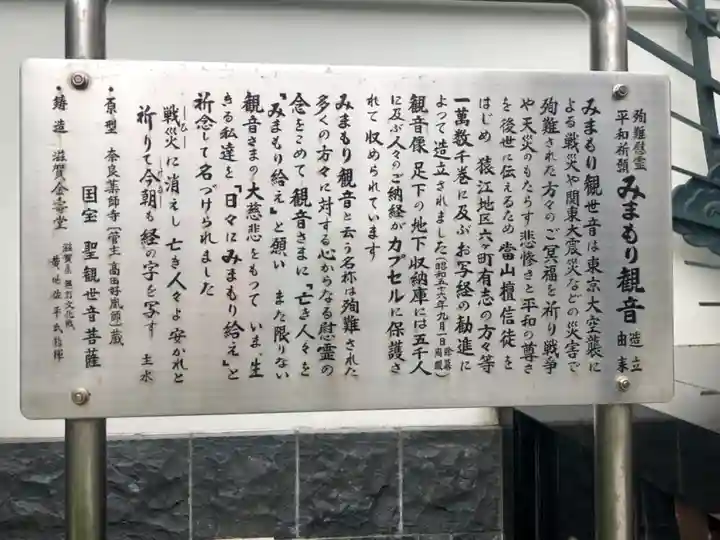 殉難慰霊
平和祈願
みまもり観音
造立
由来
みまもり観世音は東京大空襲に
よる戦災や関東大震災などの災害で
殉難された方々のご冥福を祈り戦争
や天災のもたらす悲惨さと平和の尊さ
を後世に伝えるため當山檀信徒を
はじめ 猿江地区六ヶ町有志の方々等
一萬数千巻に及ぶお写経の勧進に
よって造立されました(昭和五十六年九月一日 除幕 開眼)
観音像 足下の地下収納庫には五千人
に及ぶ人々のご納経がカプセルに保護さ
れて収められています
みまもり観音と云う名称は殉難された
多くの方々に対する心からなる慰霊の
念をこめて 観音さまに「亡き人々を
みまもり給え」と願い また限りない
観音さまの大慈悲をもって いま、生
きる私達を「日々にみまもり給え」と
祈念して名づけられました
戦災に消えし亡き人々よ安かれと
祈りて今朝も経の字を写す 圭水
・原型 奈良薬師寺(管主 高田好胤師)蔵
国宝 聖観世音菩薩
・鋳造 滋賀金壽堂
滋賀県無形文化財